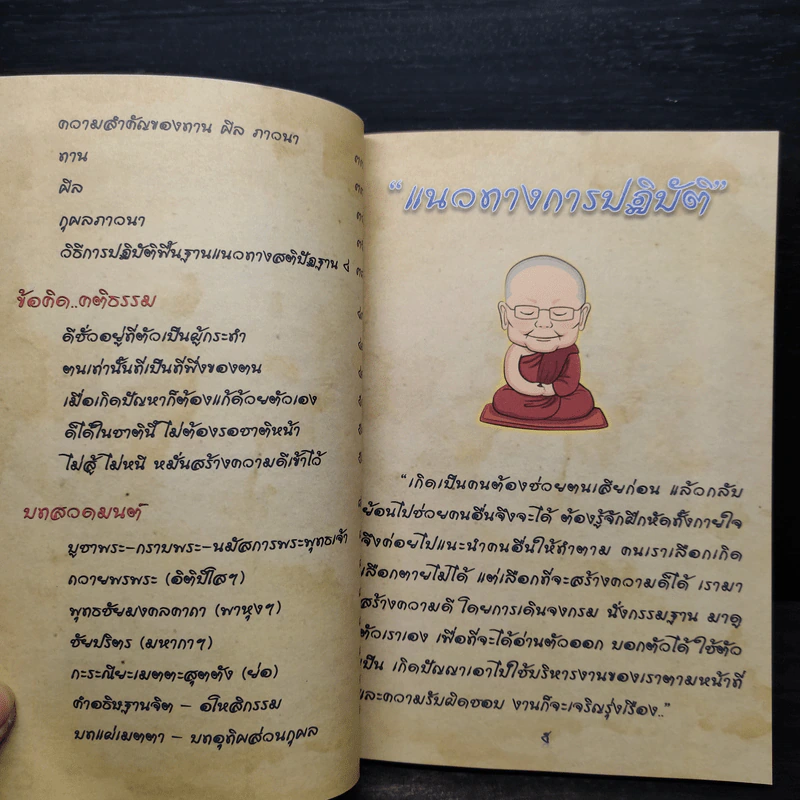 ความสำคัญของทาน ศีล ภาวนา
ทาน
ศีล
กุศลภาวนา
วิธีการปฏิบัติพื้นฐานแนวทางสติปัฏฐาน ๔
ข้อคิด..คติธรรม
ดีชั่วอยู่ที่ตัวเป็นผู้กระทำ
ตนเท่านั้นที่เป็นที่พึ่งของตน
เมื่อเกิดปัญหาก็ต้องแก้ด้วยตัวเอง
ดีได้ในชาตินี้ ไม่ต้องรอชาติหน้า
ไม่สู้ ไม่หนี หมั่นสร้างความดีเข้าไว้
บทสวดมนต์
บูชาพระ-กราบพระ-นมัสการพระพุทธเจ้า
ถวายพรพระ (อิติปิโสฯ)
พุทธชัยมงคลคาถา (พาหุงฯ)
ชัยปริตร (มหากาฯ)
กะระณียะเมตตะสุตตัง (ย่อ)
คำอธิษฐานจิต - อโหสิกรรม
บทแผ่เมตตา - บทอุทิศส่วนกุศล
"แนวทางการปฏิบัติ"
"เกิดเป็นคนต้องช่วยตนเสียก่อน แล้วกลับ
ย้อนไปช่วยคนอื่นจึงจะได้ ต้องรู้จักฝึกหัดทั้งกายใจ
จึงค่อยไปแนะนำคนอื่นให้ทำตาม คนเราเลือกเกิด
เลือกตายไม่ได้ แต่เลือกที่จะสร้างความดีได้ เรามา
สร้างความดี โดยการเดินจงกรม นั่งกรรมฐาน มาดู
ตัวเราเอง เพื่อที่จะได้อ่านตัวออก บอกตัวได้ ใช้ตัว
เป็น เกิดปัญญาเอาไปใช้บริหารงานของเราตามหน้าที่
และความรับผิดชอบ งานก็จะเจริญรุ่งเรือง.."